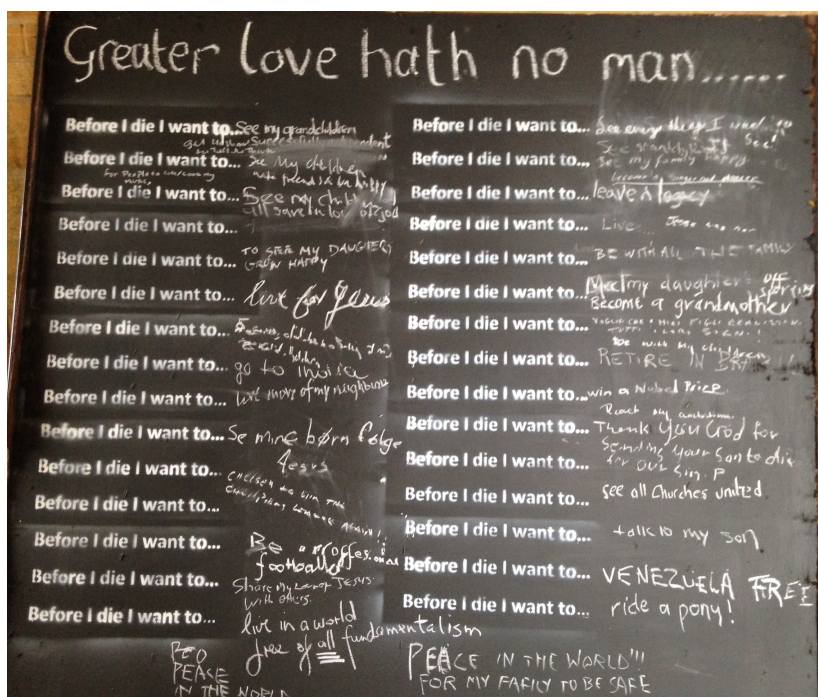 Greater love hath no man......
Before I die I want to... See my grandchildren
Before I die I want to... See My children
Before I die I want to... See my
Before I die I want to...
Before I die I want to... TO SEE MY DAUGHTER
GROW HAPPY
Before I die I want to... live for Jesus
Before I die I want to...
Before I die I want to... go to India
Before I die I want to... love more of my neighbour
Before I die I want to... Se mine børn følge
Jesus
Before I die I want to... CHELSEA TO WIN THE
CHAMPIONS LEAGUE AGAIN!!
Before I die I want to...
Before I die I want to... Be a proffesional
footballer
Before I die I want to... Share my love of JESUS
with others.
Before I die I want to... live in a world
free of all fundamentalism
PEACE
IN THE WORLD
Before I die I want to... See every thing I want to
See!
Before I die I want to... See grandchildren
See my family happy
become a singer and dancer
Before I die I want to... leave a legacy
Before I die I want to... Live
Before I die I want to... BE WITH ALL THE FAMILY
Before I die I want to... Meet my daughter's off
spring
Become a grandmother
Before I die I want to...
be with my children
Before I die I want to... RETIRE IN
Before I die I want to... win a Nobel Price.
Reach my ambitions.
Before I die I want to... Thank you God for
Sending your Son to die
Before I die I want to... for our sin. P
Before I die I want to... see all Churches united.
Before I die I want to... talk to my son
Before I die I want to... VENEZUELA FREE
Before I die I want to... ride a pony!
PEACE IN THE WORLD!!!
FOR MY FAMILY TO BE SAFE